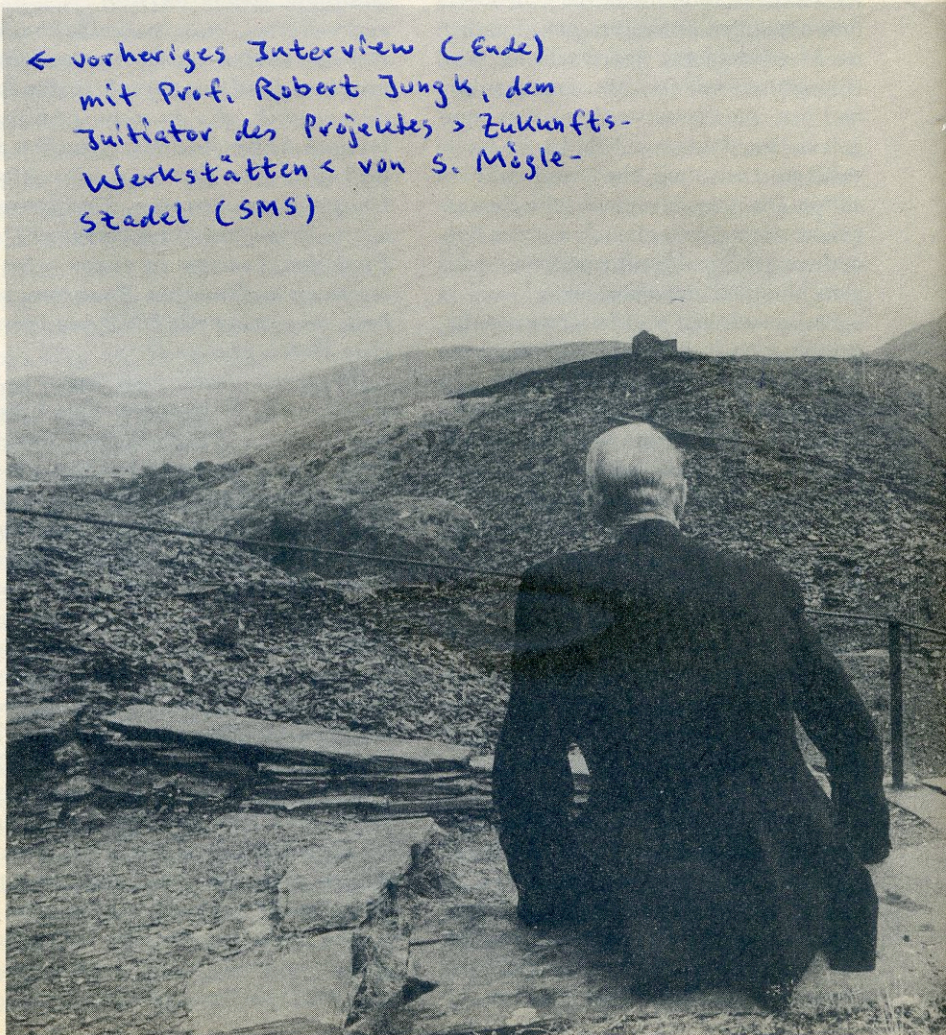 ← vorheriges Interview (Ende)
mit Prof. Robert Jungk, dem
Initiator des Projektes > Zukunfts-
Werkstätten < von S. Mögle-
Stadel (SMS)